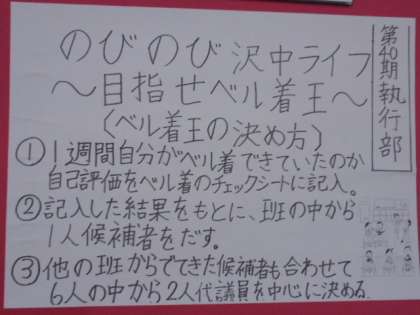 のびのび沢中ライフ
～目指せベル着王～
(ベル着王の決め方)
第40期執行部
①1週間自分がベル着できていたのか
自己評価をベル着のチェックシートに記入。
②記入した結果をもとに、班の中から
1人候補者をだす。
③他の班からでてきた候補者も合わせて
6人の中から2人代議員を中心に決める.